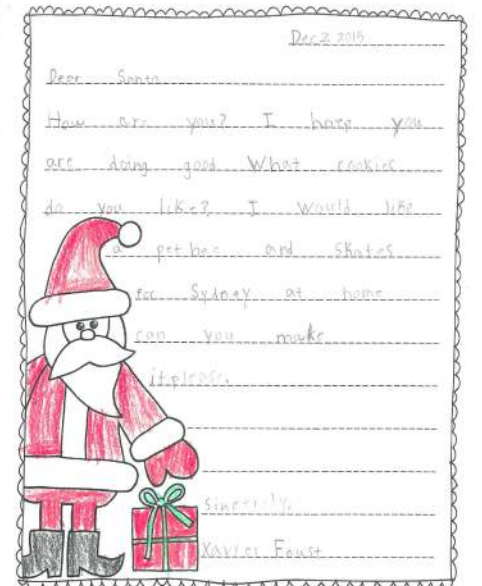 Dec 2 2015
Dear Santa
How are you? I hope you
are doing good What cookies
do you like? I would like
a pet bee and skates
for Sydney at home
can you make
it please.
Sincerely,
Xavier Foust